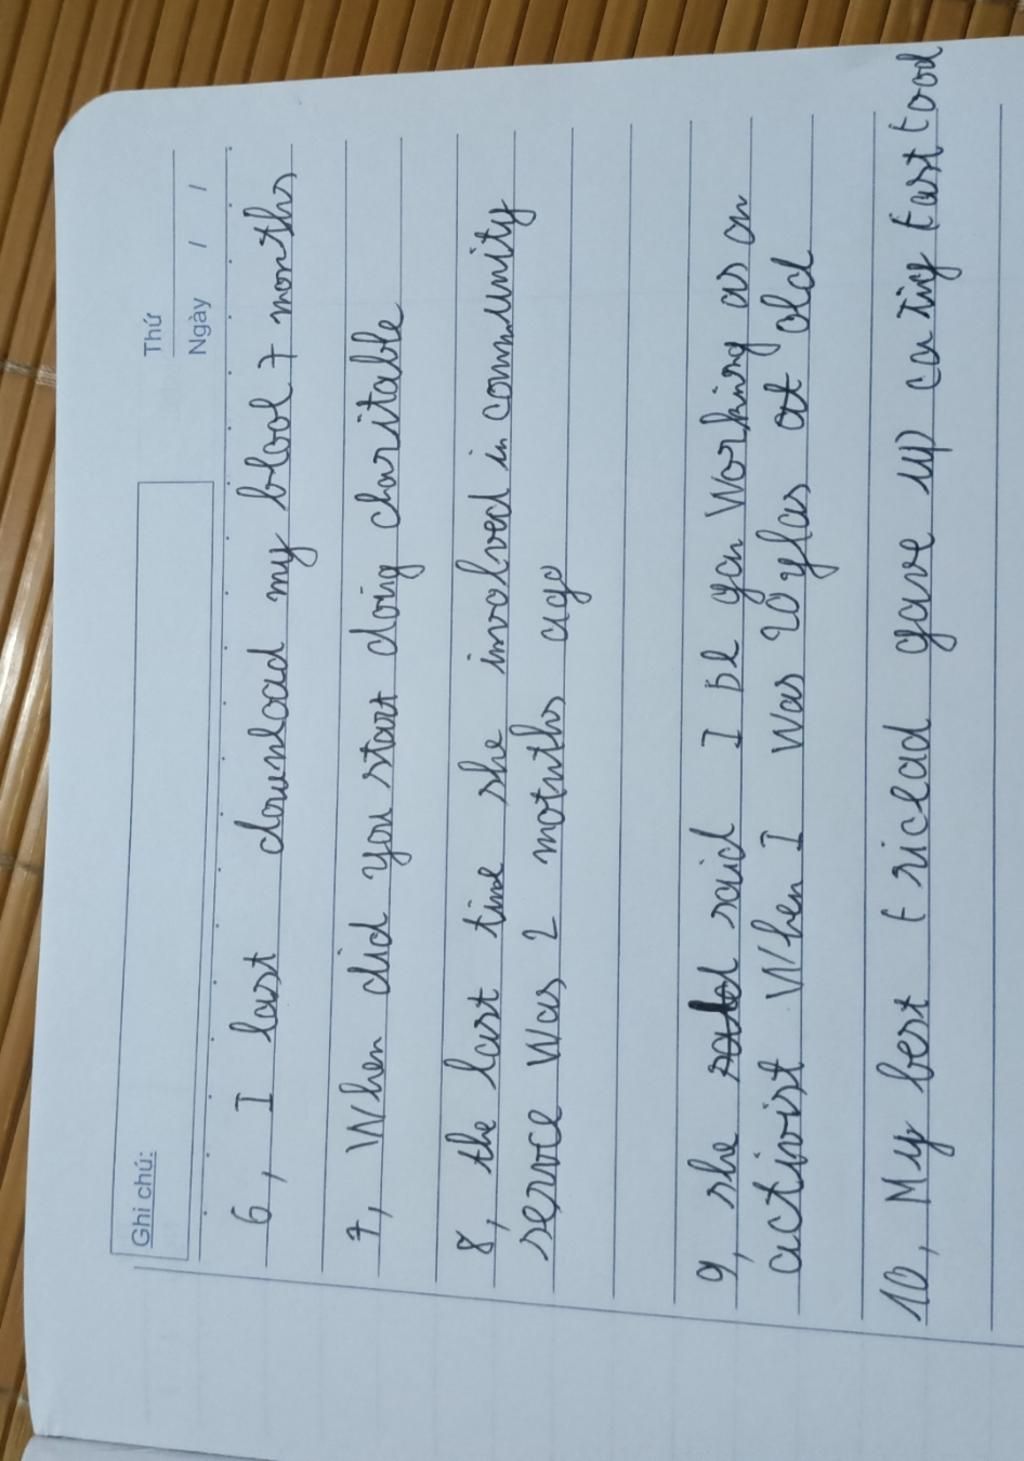 Ghi chú:
Thứ
Ngày / /
6, I last download my blool 7 months
7, When did you start doing charitable
8, the last time she involved in community
service Was 2 motnths ago
9, she said I be gan Working as an
activist When I Was 20 yeas at old
10, My best friclad gave up catig fast food